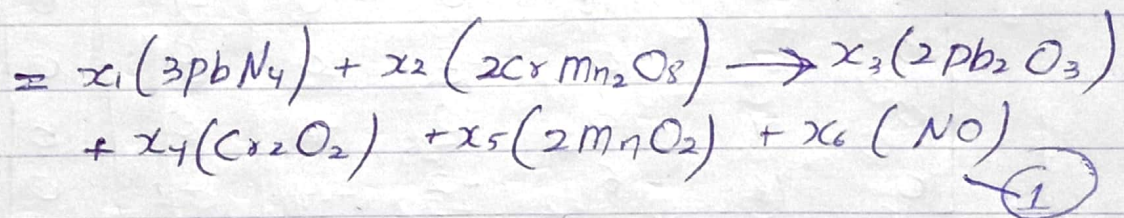 = x₁(3PbN₄) + x₂(2CrMn₂O₈) → x₃(2Pb₂O₃)
+ x₄(Cr₂O₂) + x₅(2MnO₂) + x₆(NO)
1